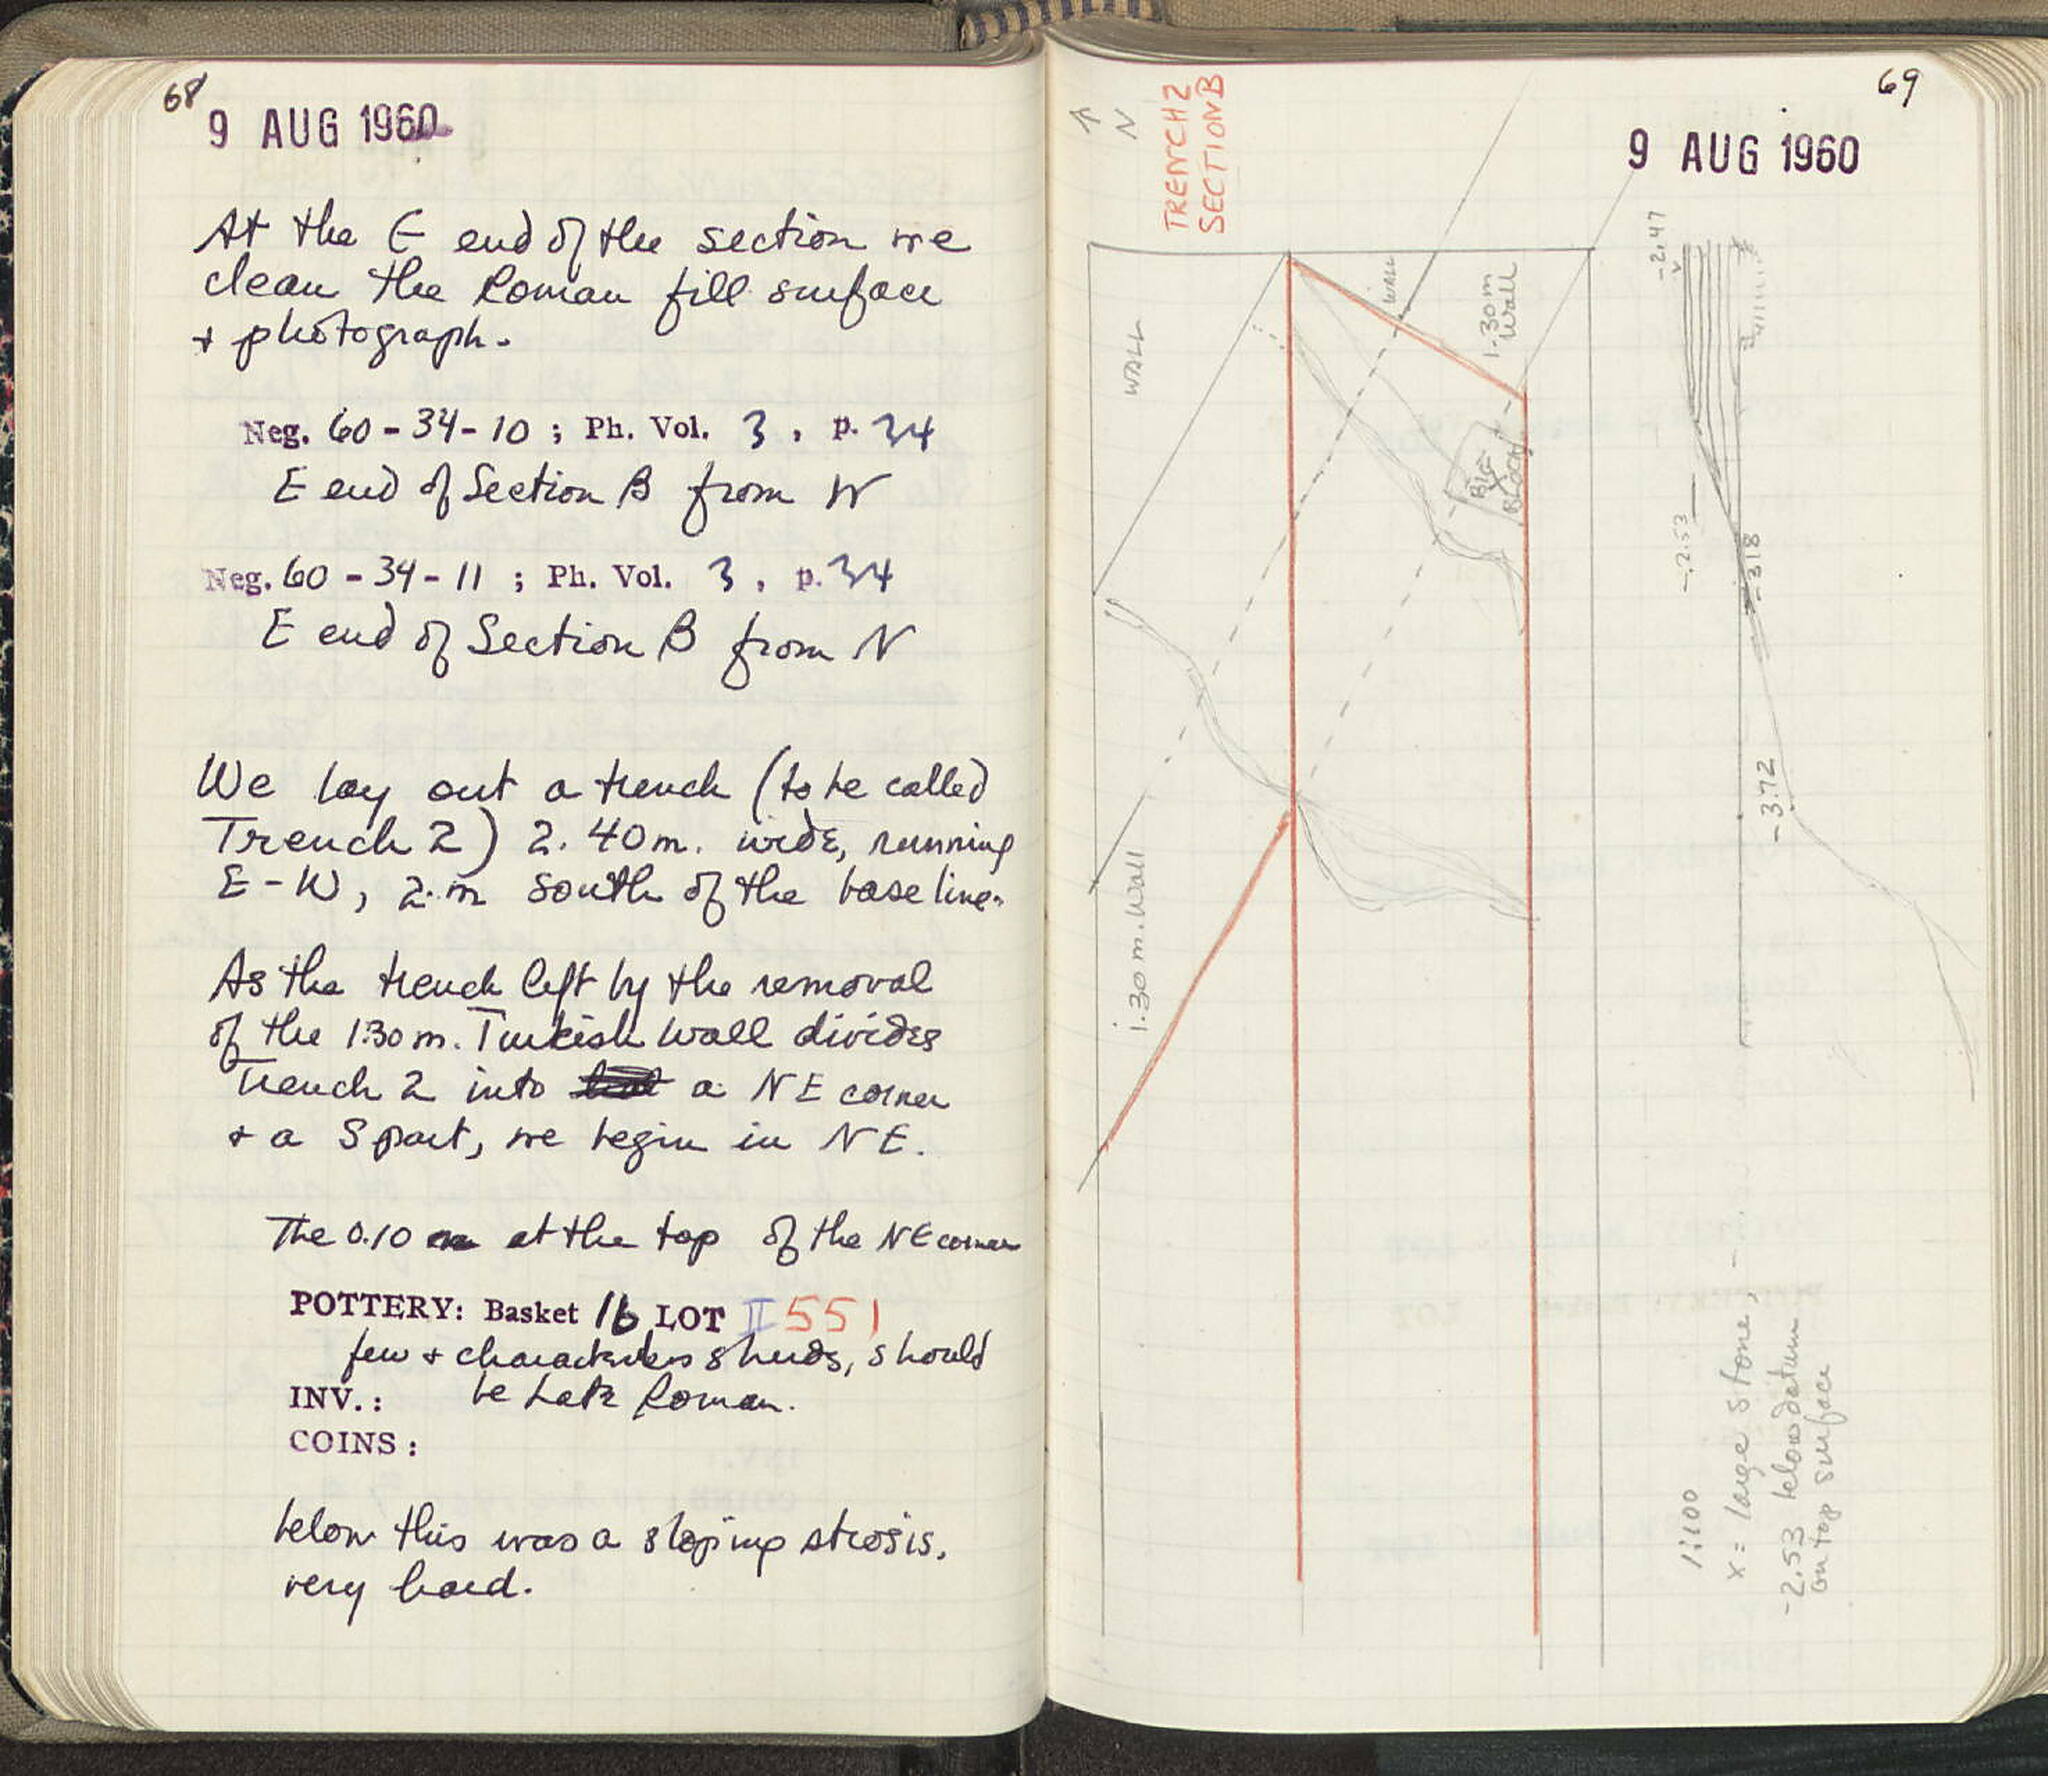 68
9 AUG 1960
At the E end of the section we
clean the Roman fill surface
+ photograph.
Neg. 60-34-10 ; Ph. Vol. 3 , p. 34
E end of Section B from W
Neg. 60-34-11 ; Ph. Vol. 3 , p. 34
E end of Section B from N
We lay out a trench (to be called
Trench 2) 2.40m. wide, running
E-W, 2.m south of the base line.
As the trench left by the removal
of the 1.30 m. Turkish wall divides
Trench 2 into a NE corner
+ a S part, we begin in NE.
The 0.10 m at the top of the NE corner
POTTERY: Basket 16 LOT II 551
few + characterless sherds, should
be Late Roman.
INV.:
COINS:
below this was a sloping strosis,
very hard.
69
9 AUG 1960
N
TRENCH 2
SECTION B
WALL
WALL
1.30m
Wall
BIG
X
BLOCK
1.30 m. Wall
-2.47
-2.53
-3.18
-3.72
1:100
x = large stone,
-2.53 below datum
on top surface